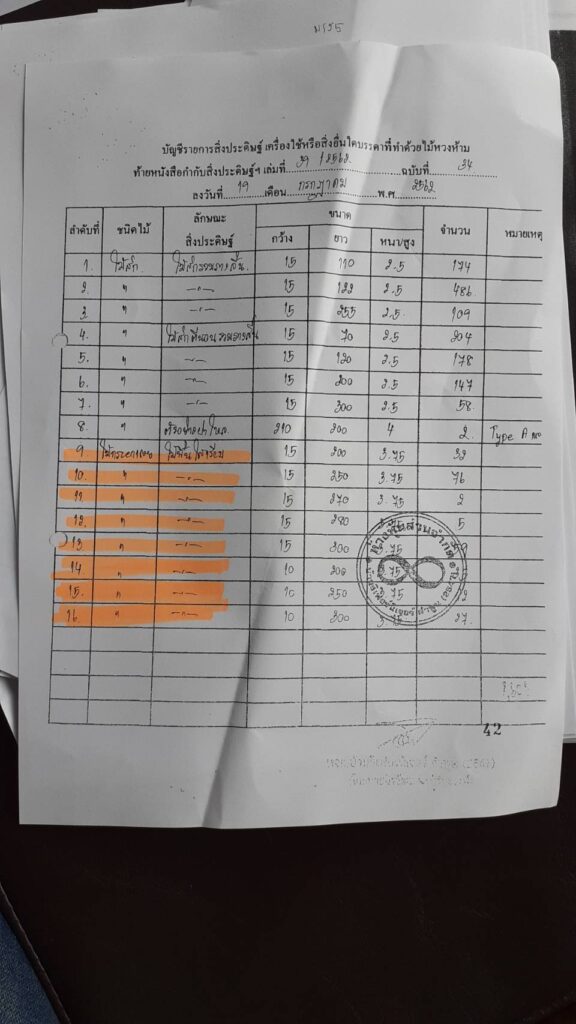 บัญชีรายการสิ่งประดิษฐ์ เครื่องใช้หรือสิ่งอื่นใดบรรดาที่ทำด้วยไม้หวงห้าม
ท้ายหนังสือกำกับสิ่งประดิษฐ์ฯ เล่มที่ 39 / 2562 ฉบับที่ 34
ลงวันที่ 19 เดือน กรกฎาคม พ.ศ. 2562
ลำดับที่ ชนิดไม้ ลักษณะสิ่งประดิษฐ์ ขนาด จำนวน หมายเหตุ
กว้าง ยาว หนา/สูง
1. ไม้สัก 15 110 2.5 174
2. " -"- 15 122 2.5 486
3. " -"- 15 255 2.5 109
4. " 15 70 2.5 204
5. " -"- 15 120 2.5 178
6. " -"- 15 200 2.5 147
7. " -"- 15 300 2.5 58
8. " 210 200 4 2 Type A
9. ไม้พื้น 15 200 3.75 32
10. " -"- 15 250 3.75 76
11. " -"- 15 270 3.75 2
12. " -"- 15 280 5
13. " -"- 15 300 3.75
14. " -"- 10 200 3.75
15. " -"- 10 250 3.75
16. " -"- 10 300 3.75 27
ห้างหุ้นส่วนจำกัด
42